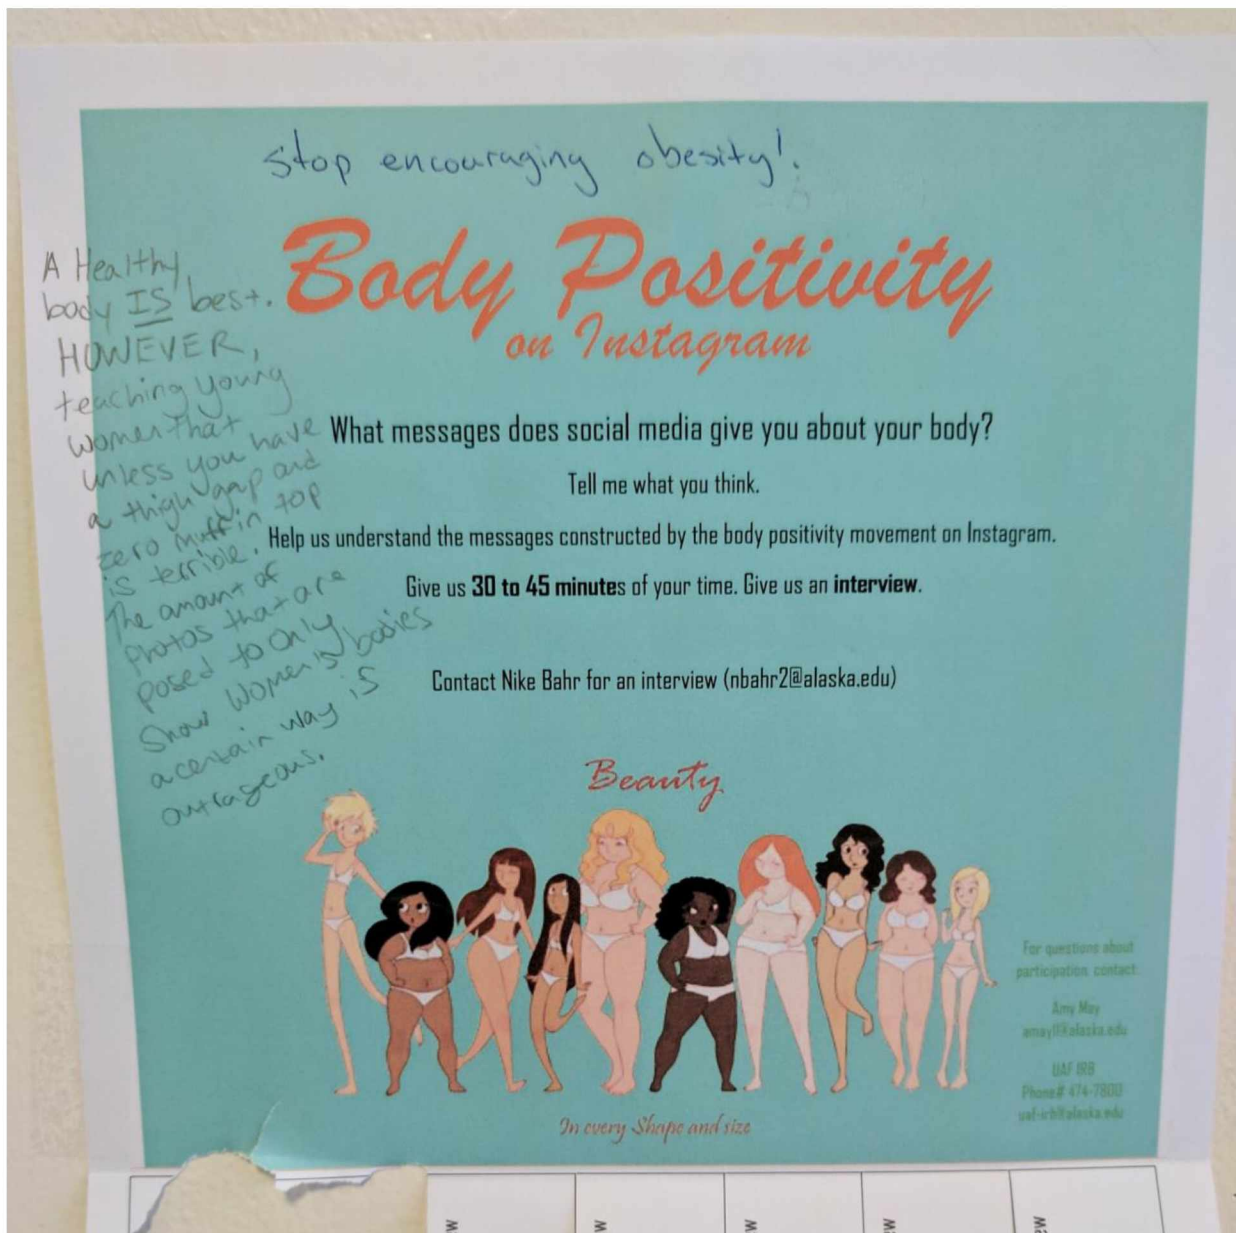 stop encouraging obesity!
A Healthy
body IS best.
HOWEVER,
teaching young
women that
unless you have
a thigh gap and
zero muffin top
is terrible.
The amount of
photos that are
posed to only
show women's bodies
a certain way is
outrageous.
Body Positivity
on Instagram
What messages does social media give you about your body?
Tell me what you think.
Help us understand the messages constructed by the body positivity movement on Instagram.
Give us 30 to 45 minutes of your time. Give us an interview.
Contact Nike Bahr for an interview (nbahr2@alaska.edu)
Beauty
In every Shape and size
For questions about
participation contact:
Amy May
amay11@alaska.edu
UAF IRB
Phone# 474-7800
uaf-irb@alaska.edu